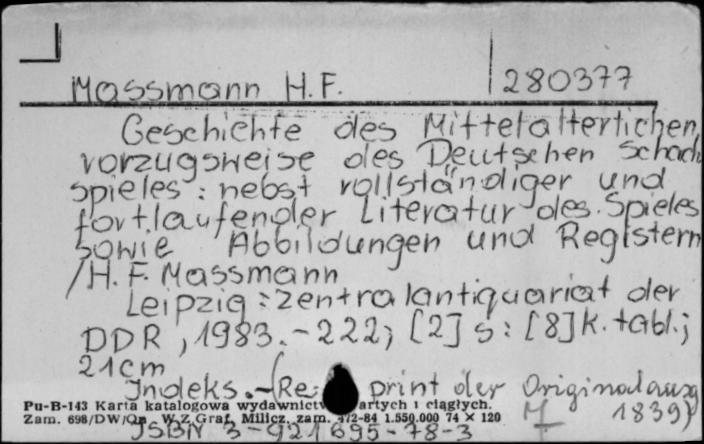 Massmann H.F. 280377
Geschichte des Mittelalterlichen,
vorzugsweise des Deutschen Schach
spieles : nebst vollständiger und
fortlaufender Literatur des Spieles
sowie Abbildungen und Registern
/H. F. Massmann
Leipzig : Zentralantiquariat der
DDR, 1983. - 222, [2] s : [8] k. tabl.;
21cm
Indeks. - (Re print der Originalausg
Pu-B-143 Karta katalogowa wydawnictw artych i ciągłych. 1839)
Zam. 698/DW/Op. W.Z.Graf. Milicz, zam. 472-84 1.550.000 74 × 120
ISBN 3-921695-78-3